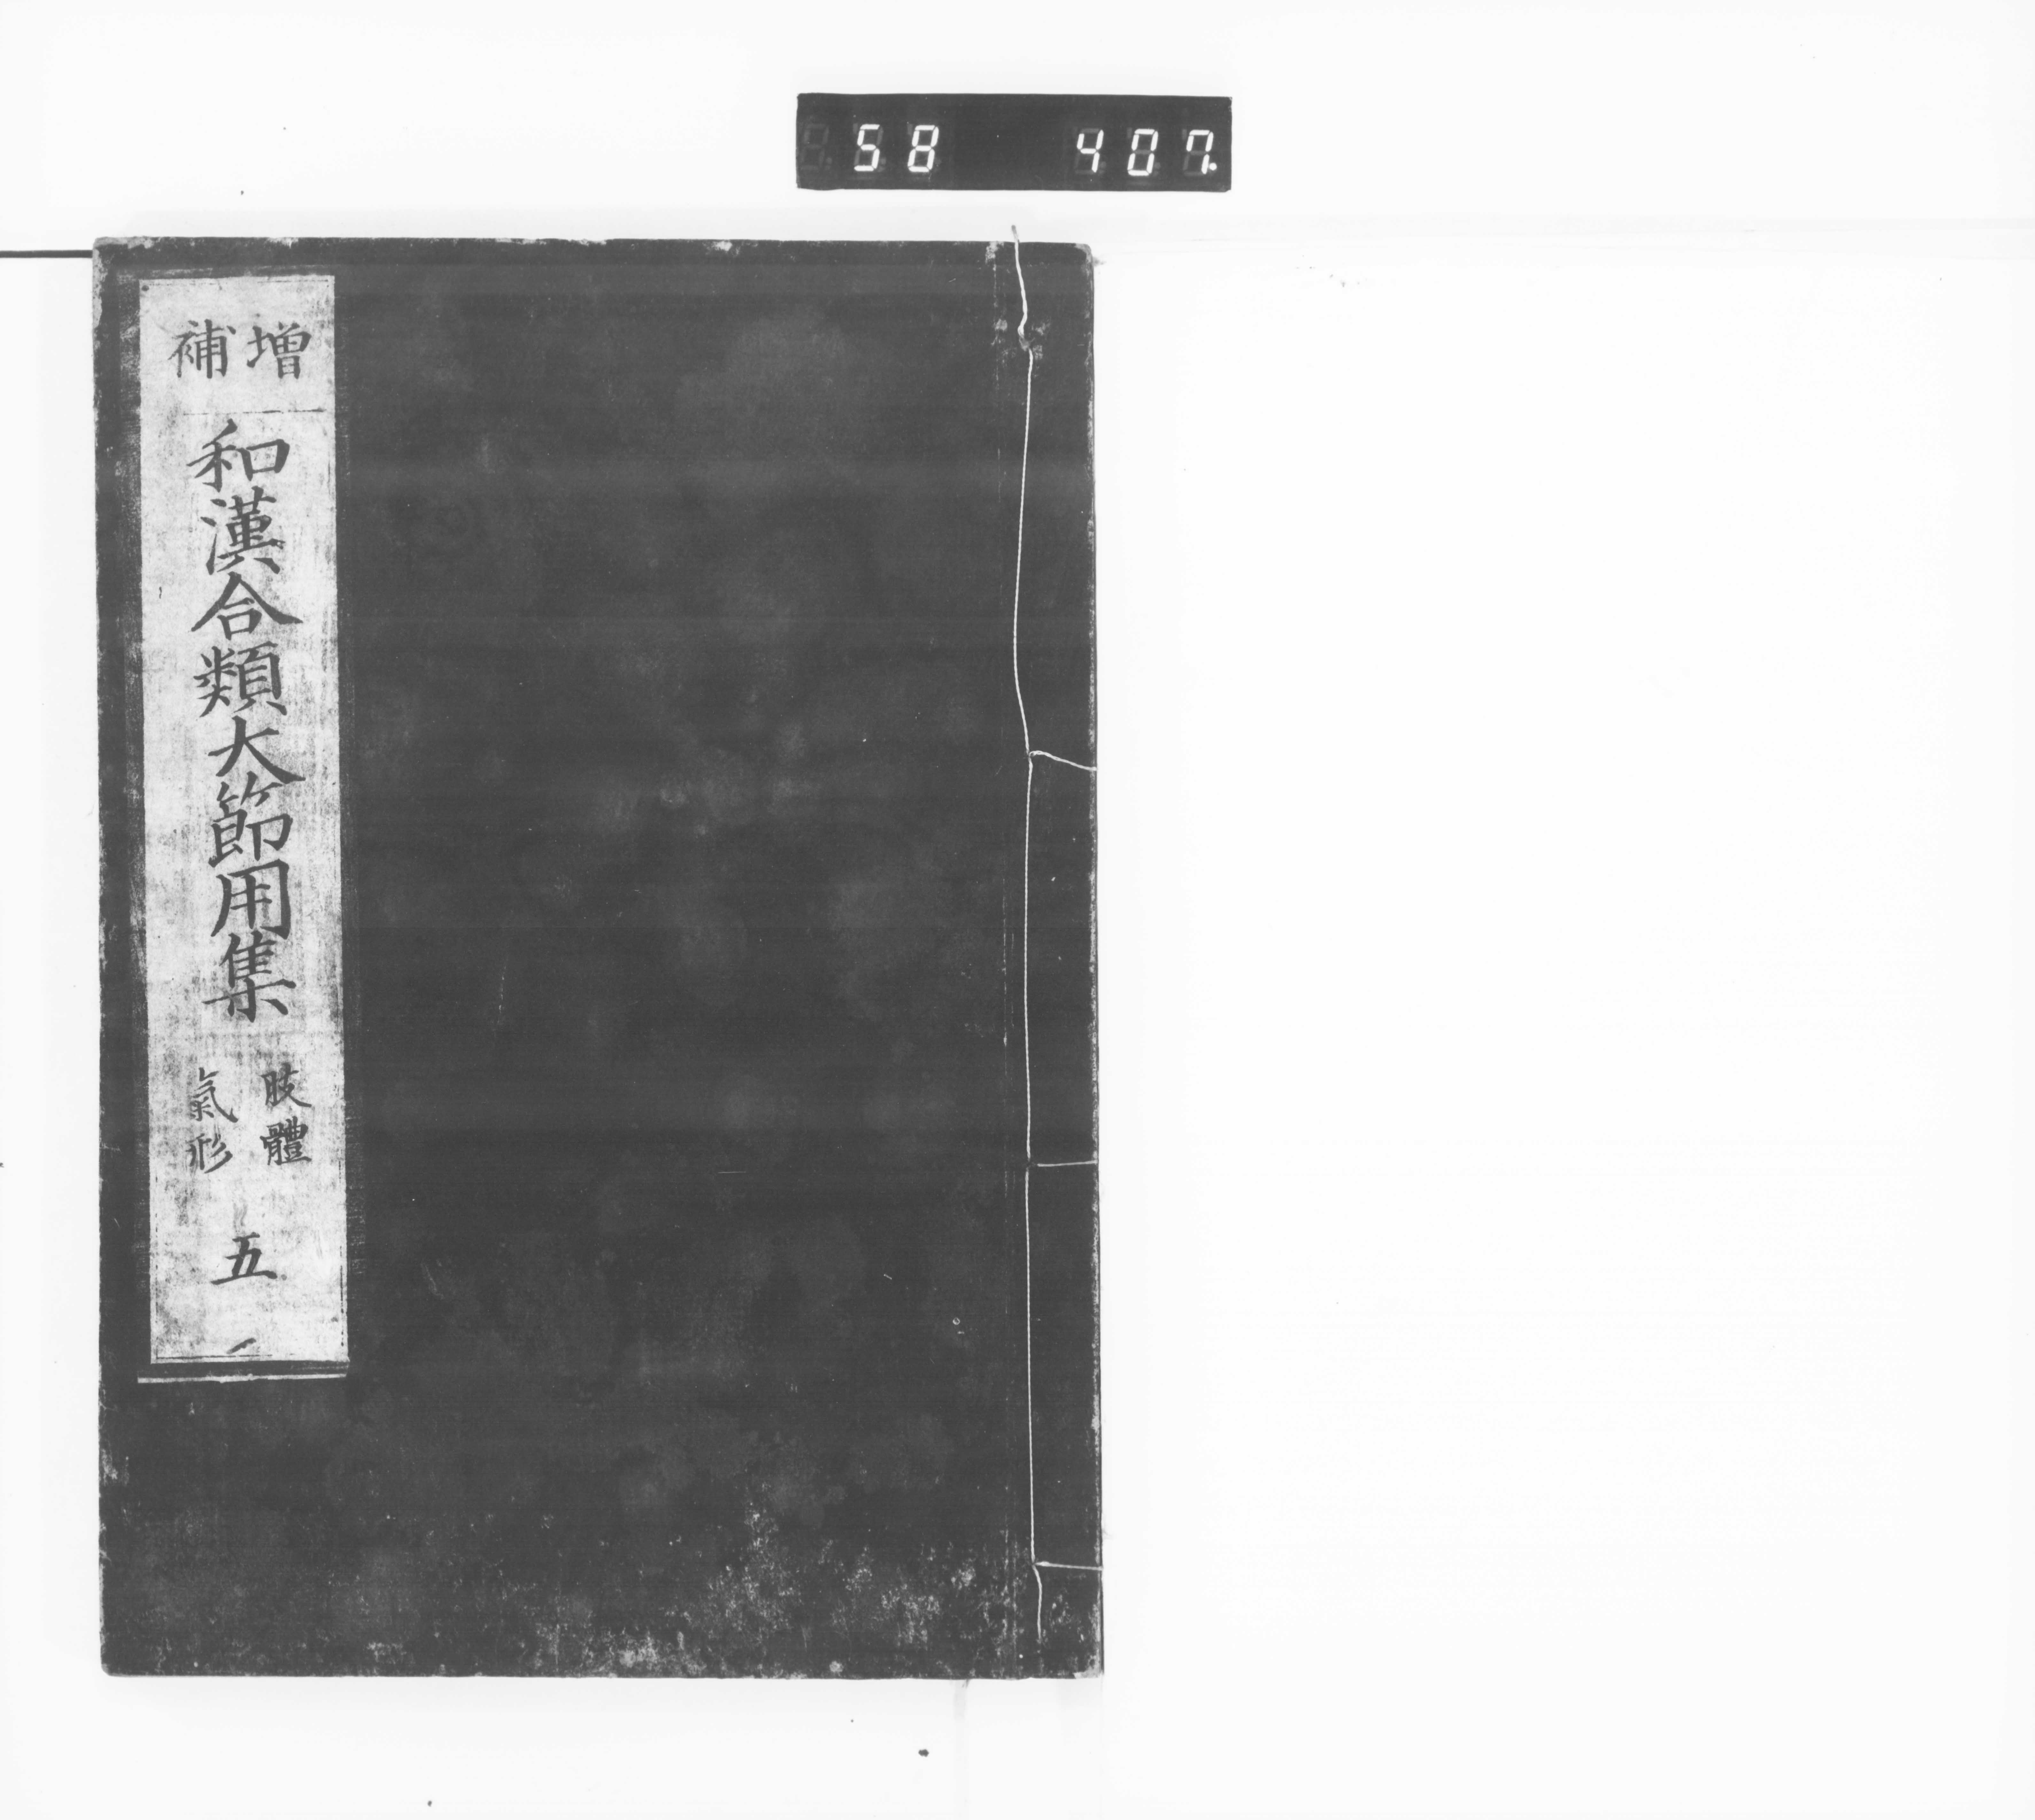 58 407
増補
和漢合類大節用集
肢體
氣形
五